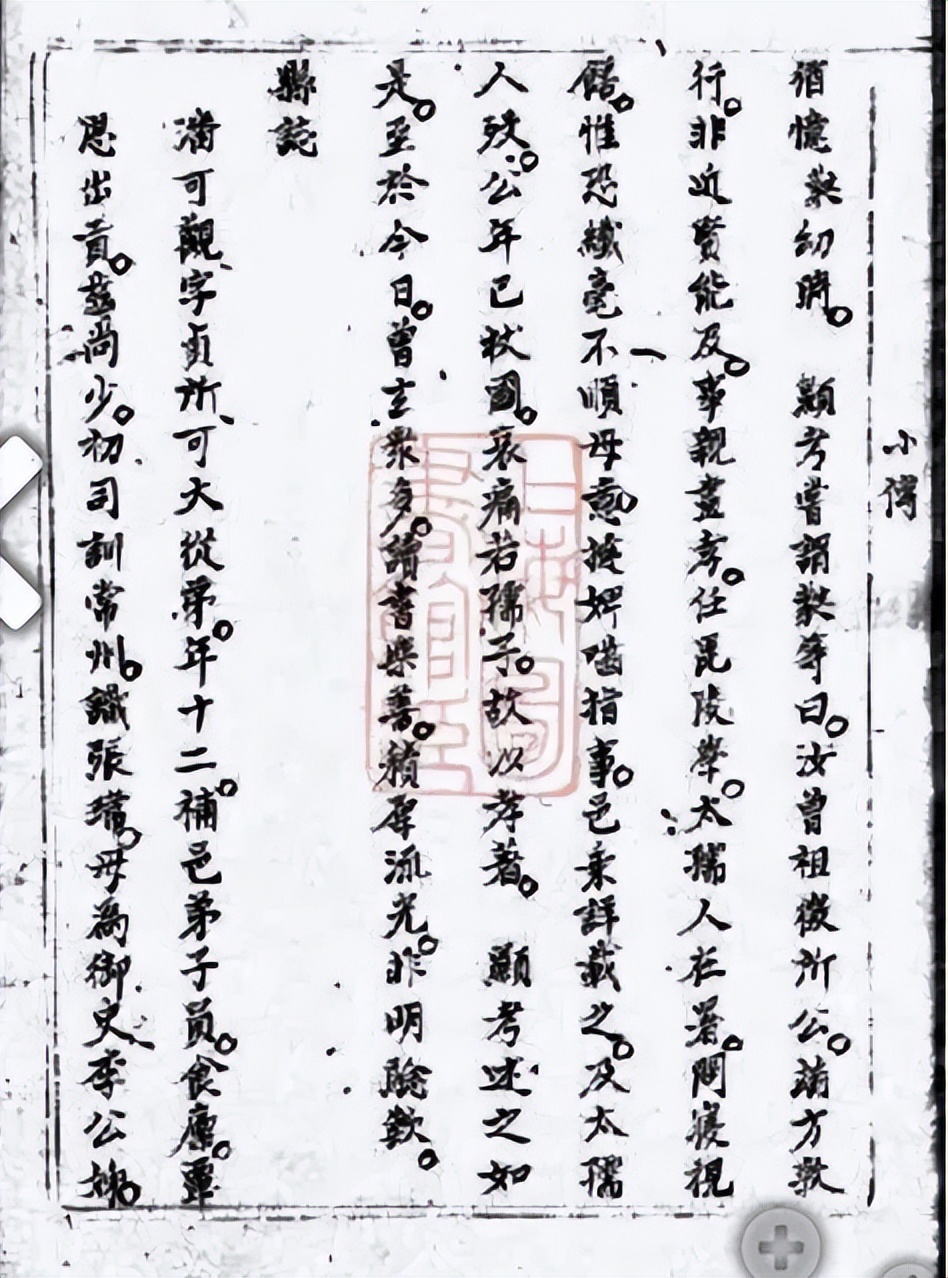 小傳
猶憶棻幼時。顯考嘗謂棻等曰。汝曾祖徵所公。端方敦
行。非近賢能及。事親盡孝。任毘陵學。太孺人在署。問寢視
膳。惟恐纖毫不順母意。援婢嚙指事。邑乘詳載之。及太孺
人歿。公年已杖國。哀痛若孺子。故以孝著。顯考述之如
是。至於今日。曾玄衆多。讀書樂善。積厚流光。非明驗歟。
縣誌
潘可觀字貞所可大從弟。年十二。補邑弟子員。食廩。覃
恩出貢。齒尚少。初司訓常州。識張瑋。母為御史李公